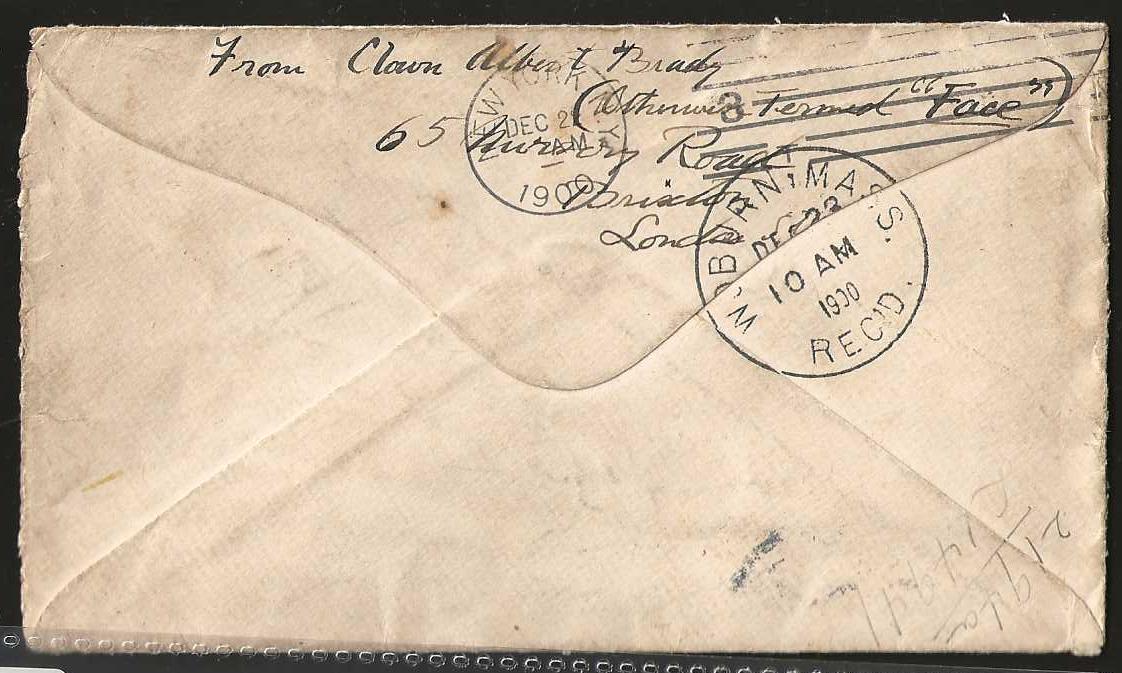 From Clown Albert Brady
(Otherwise Termed "Face")
65 Nursery Road
Brixton
London
NEW YORK
DEC 2
AM
1900
8
WOBURN, MASS.
DEC 23
10 AM
1900
REC'D.